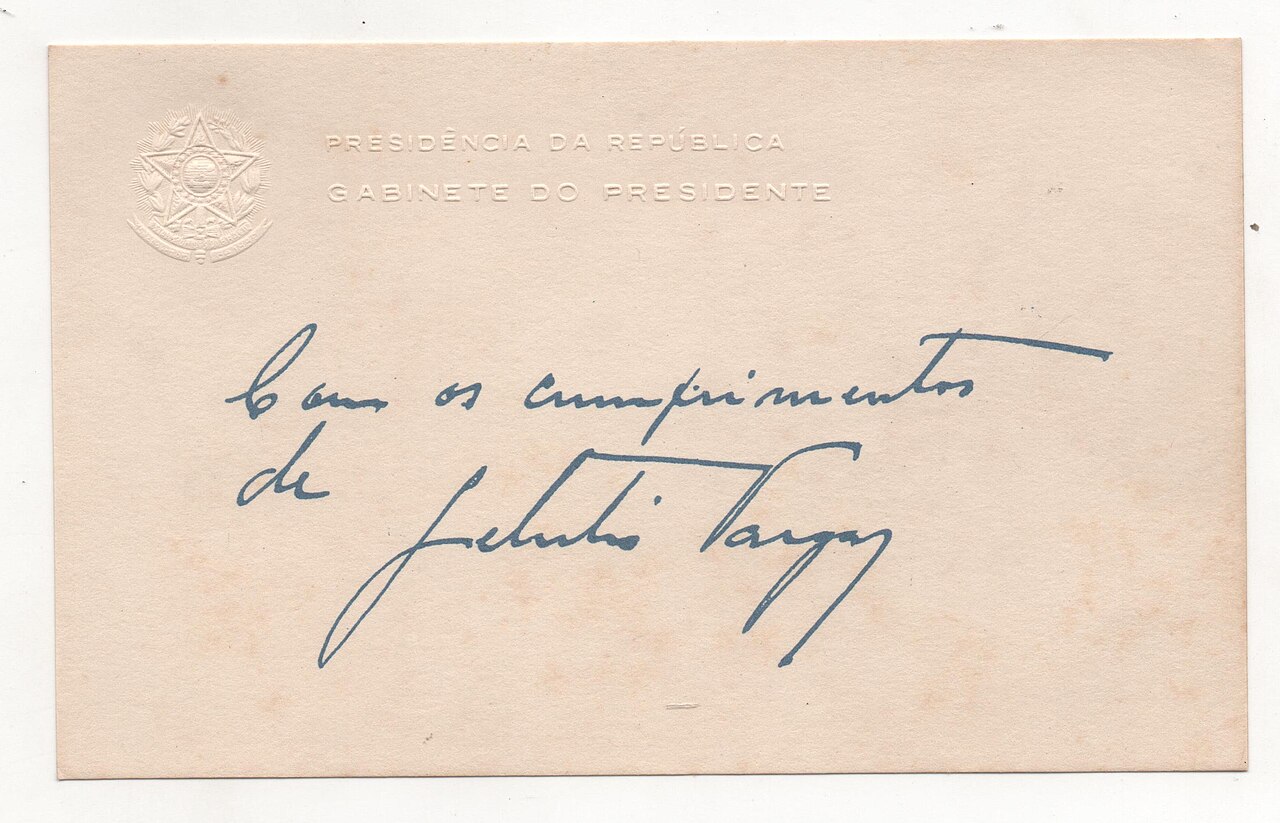 PRESIDÊNCIA DA REPÚBLICA
GABINETE DO PRESIDENTE
Com os cumprimentos
de
Getulio Vargas